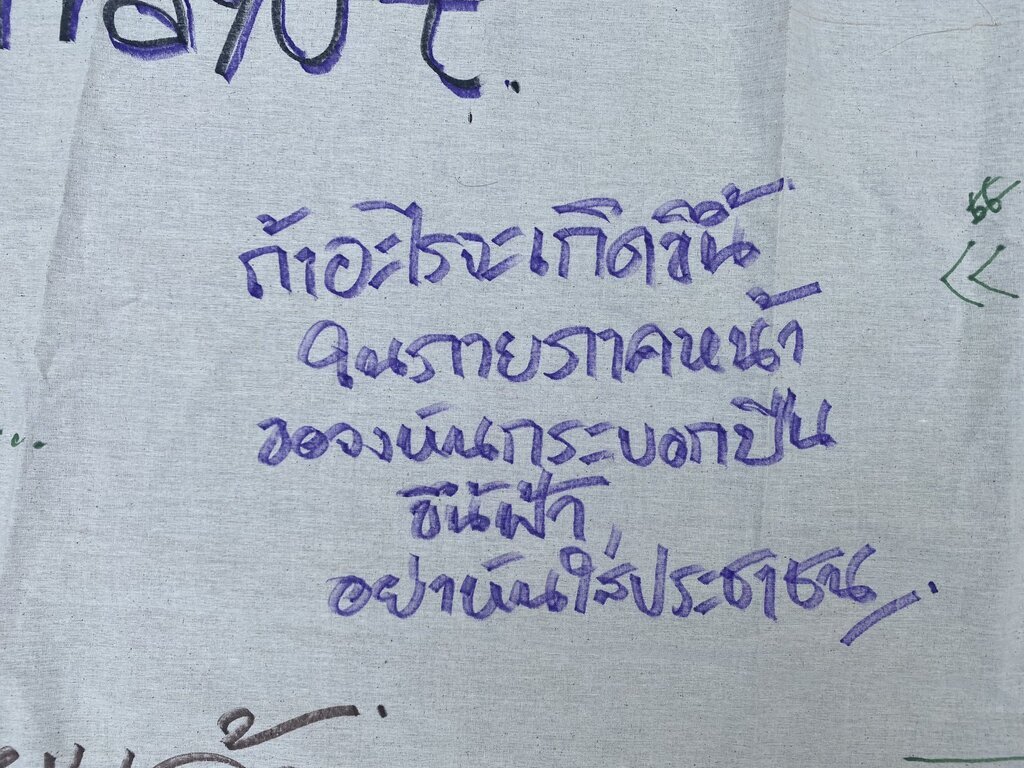 ถ้าอะไรจะเกิดขึ้น
ในภายภาคหน้า
ขอจงหันกระบอกปืน
ขึ้นฟ้า
อย่าหันใส่ประชาชน